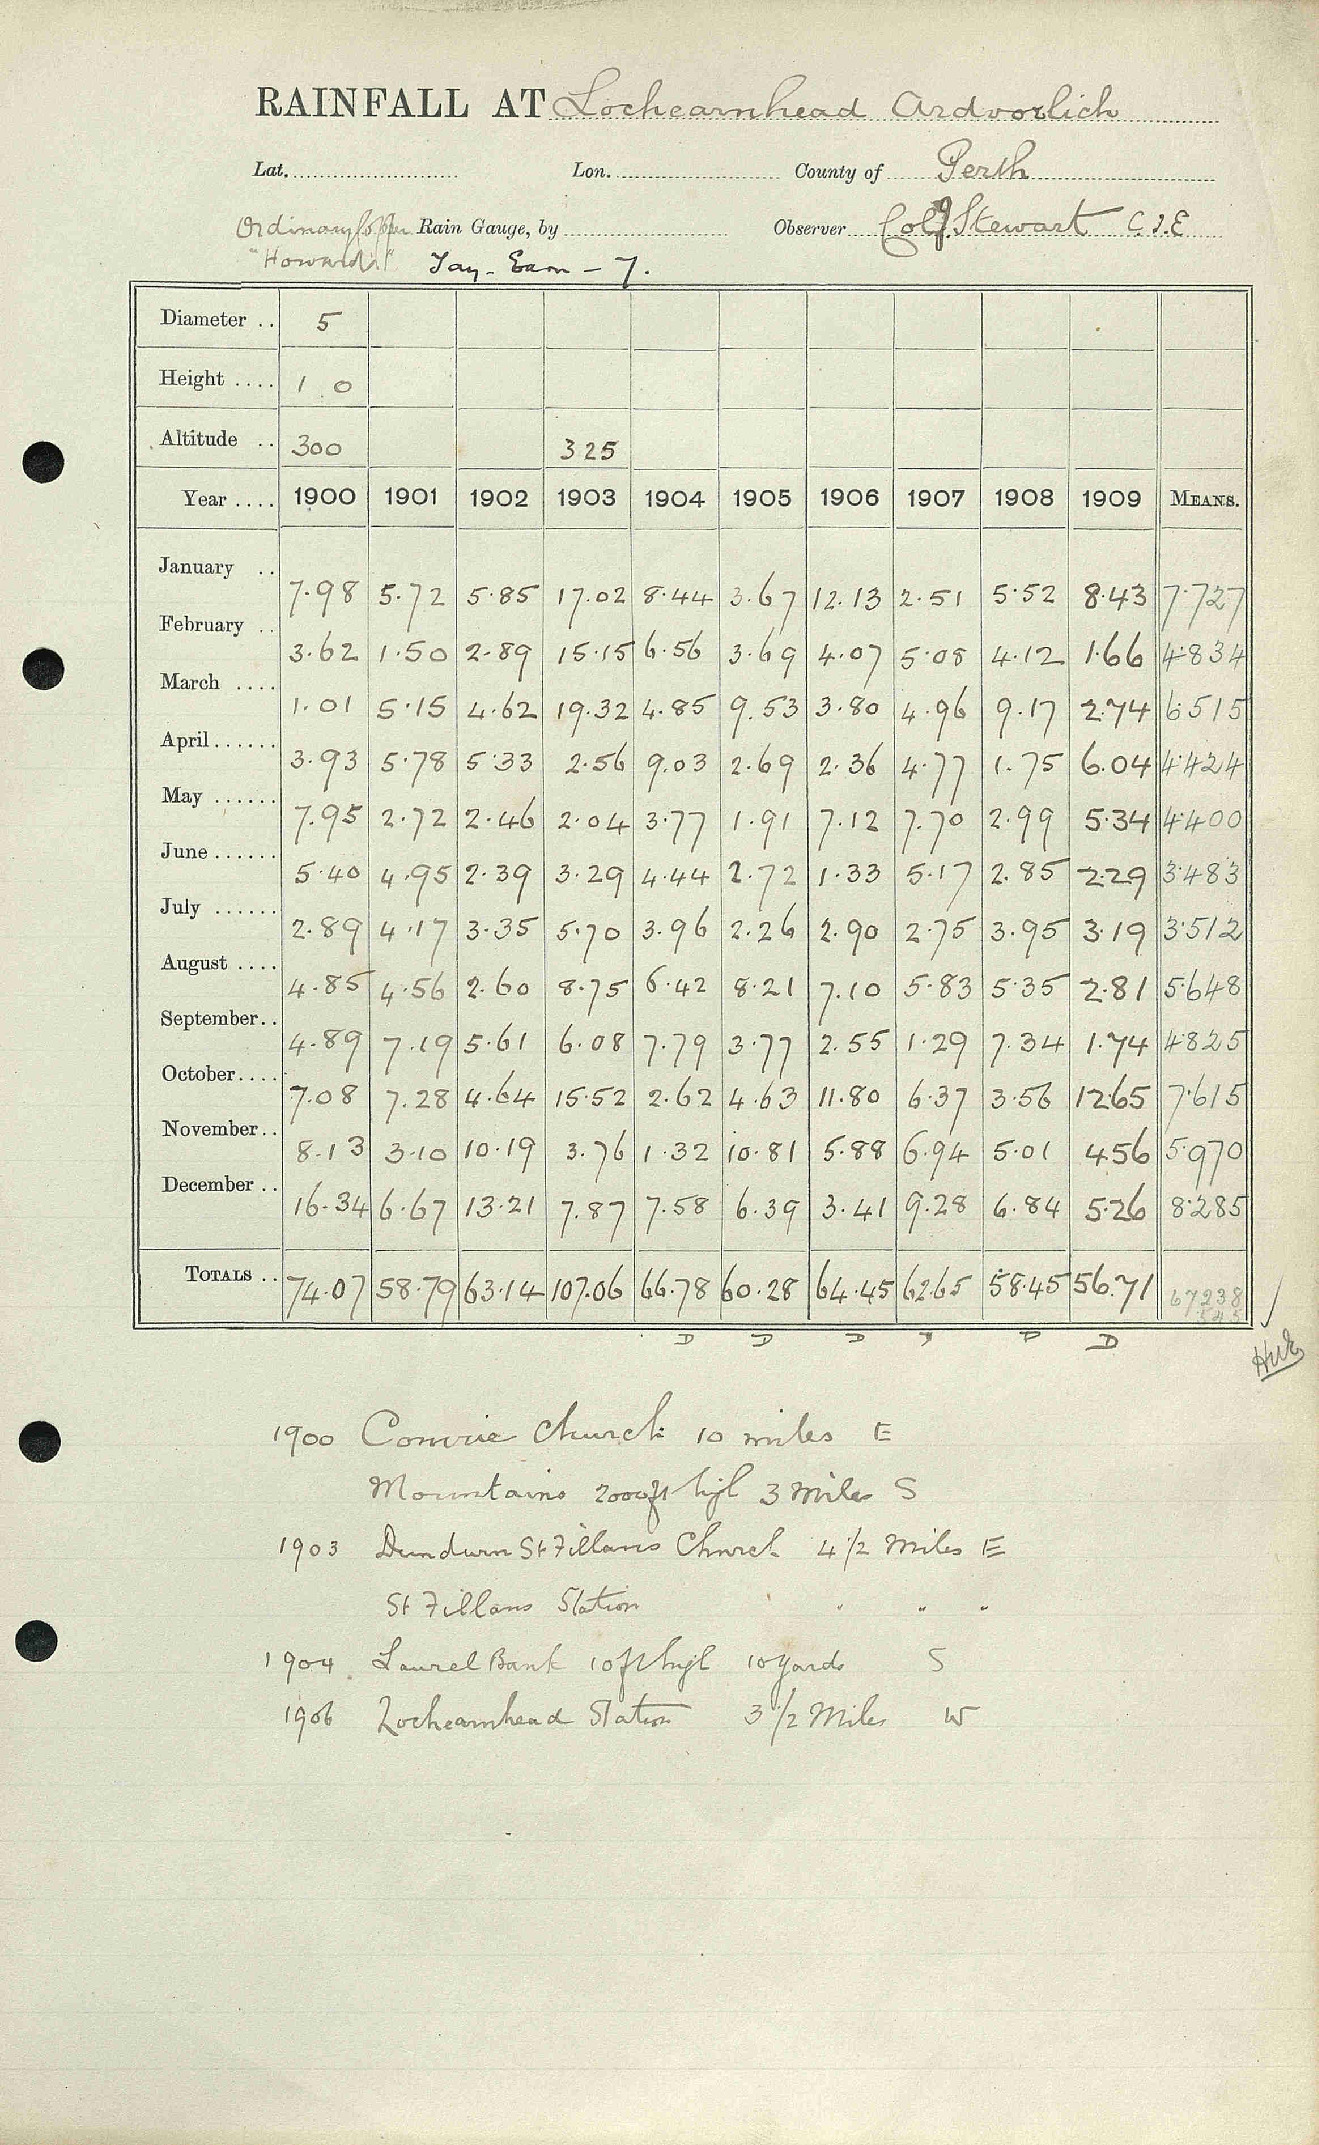 RAINFALL AT Lochearnhead Ardvorlich
Lat. Lon. County of Perth
Ordinary Rain Gauge, by Observer Col J Stewart C.I.E
"Howard's" Tay - Earn - 7.
Diameter .. 5
Height .... 1 . 0
Altitude .. 300 325
Year .... 1900 1901 1902 1903 1904 1905 1906 1907 1908 1909 MEANS.
January .. 7.98 5.72 5.85 17.02 8.44 3.67 12.13 2.51 5.52 8.43 7.727
February .. 3.62 1.50 2.89 15.15 6.56 3.69 4.07 5.08 4.12 1.66 4.834
March .... 1.01 5.15 4.62 19.32 4.85 9.53 3.80 4.96 9.17 2.74 6.515
April...... 3.93 5.78 5.33 2.56 9.03 2.69 2.36 4.77 1.75 6.04 4.424
May ...... 7.95 2.72 2.46 2.04 3.77 1.91 7.12 7.70 2.99 5.34 4.400
June...... 5.40 4.95 2.39 3.29 4.44 2.72 1.33 5.17 2.85 2.29 3.483
July ...... 2.89 4.17 3.35 5.70 3.96 2.26 2.90 2.75 3.95 3.19 3.512
August .... 4.85 4.56 2.60 8.75 6.42 8.21 7.10 5.83 5.35 2.81 5.648
September.. 4.89 7.19 5.61 6.08 7.79 3.77 2.55 1.29 7.34 1.74 4.825
October.... 7.08 7.28 4.64 15.52 2.62 4.63 11.80 6.37 3.56 12.65 7.615
November.. 8.13 3.10 10.19 3.76 1.32 10.81 5.88 6.94 5.01 4.56 5.970
December .. 16.34 6.67 13.21 7.87 7.58 6.39 3.41 9.28 6.84 5.26 8.285
TOTALS .. 74.07 58.79 63.14 107.06 66.78 60.28 64.45 62.65 58.45 56.71 67.238
D D D D D D
1900 Comrie Church 10 miles E
Mountains 2000ft high 3 Miles S
1903 Dundurn St Fillans Church 4 1/2 Miles E
St Fillans Station " " "
1904 Laurel Bank 10ft high 10 yards S
1906 Lochearnhead Station 3 1/2 Miles W